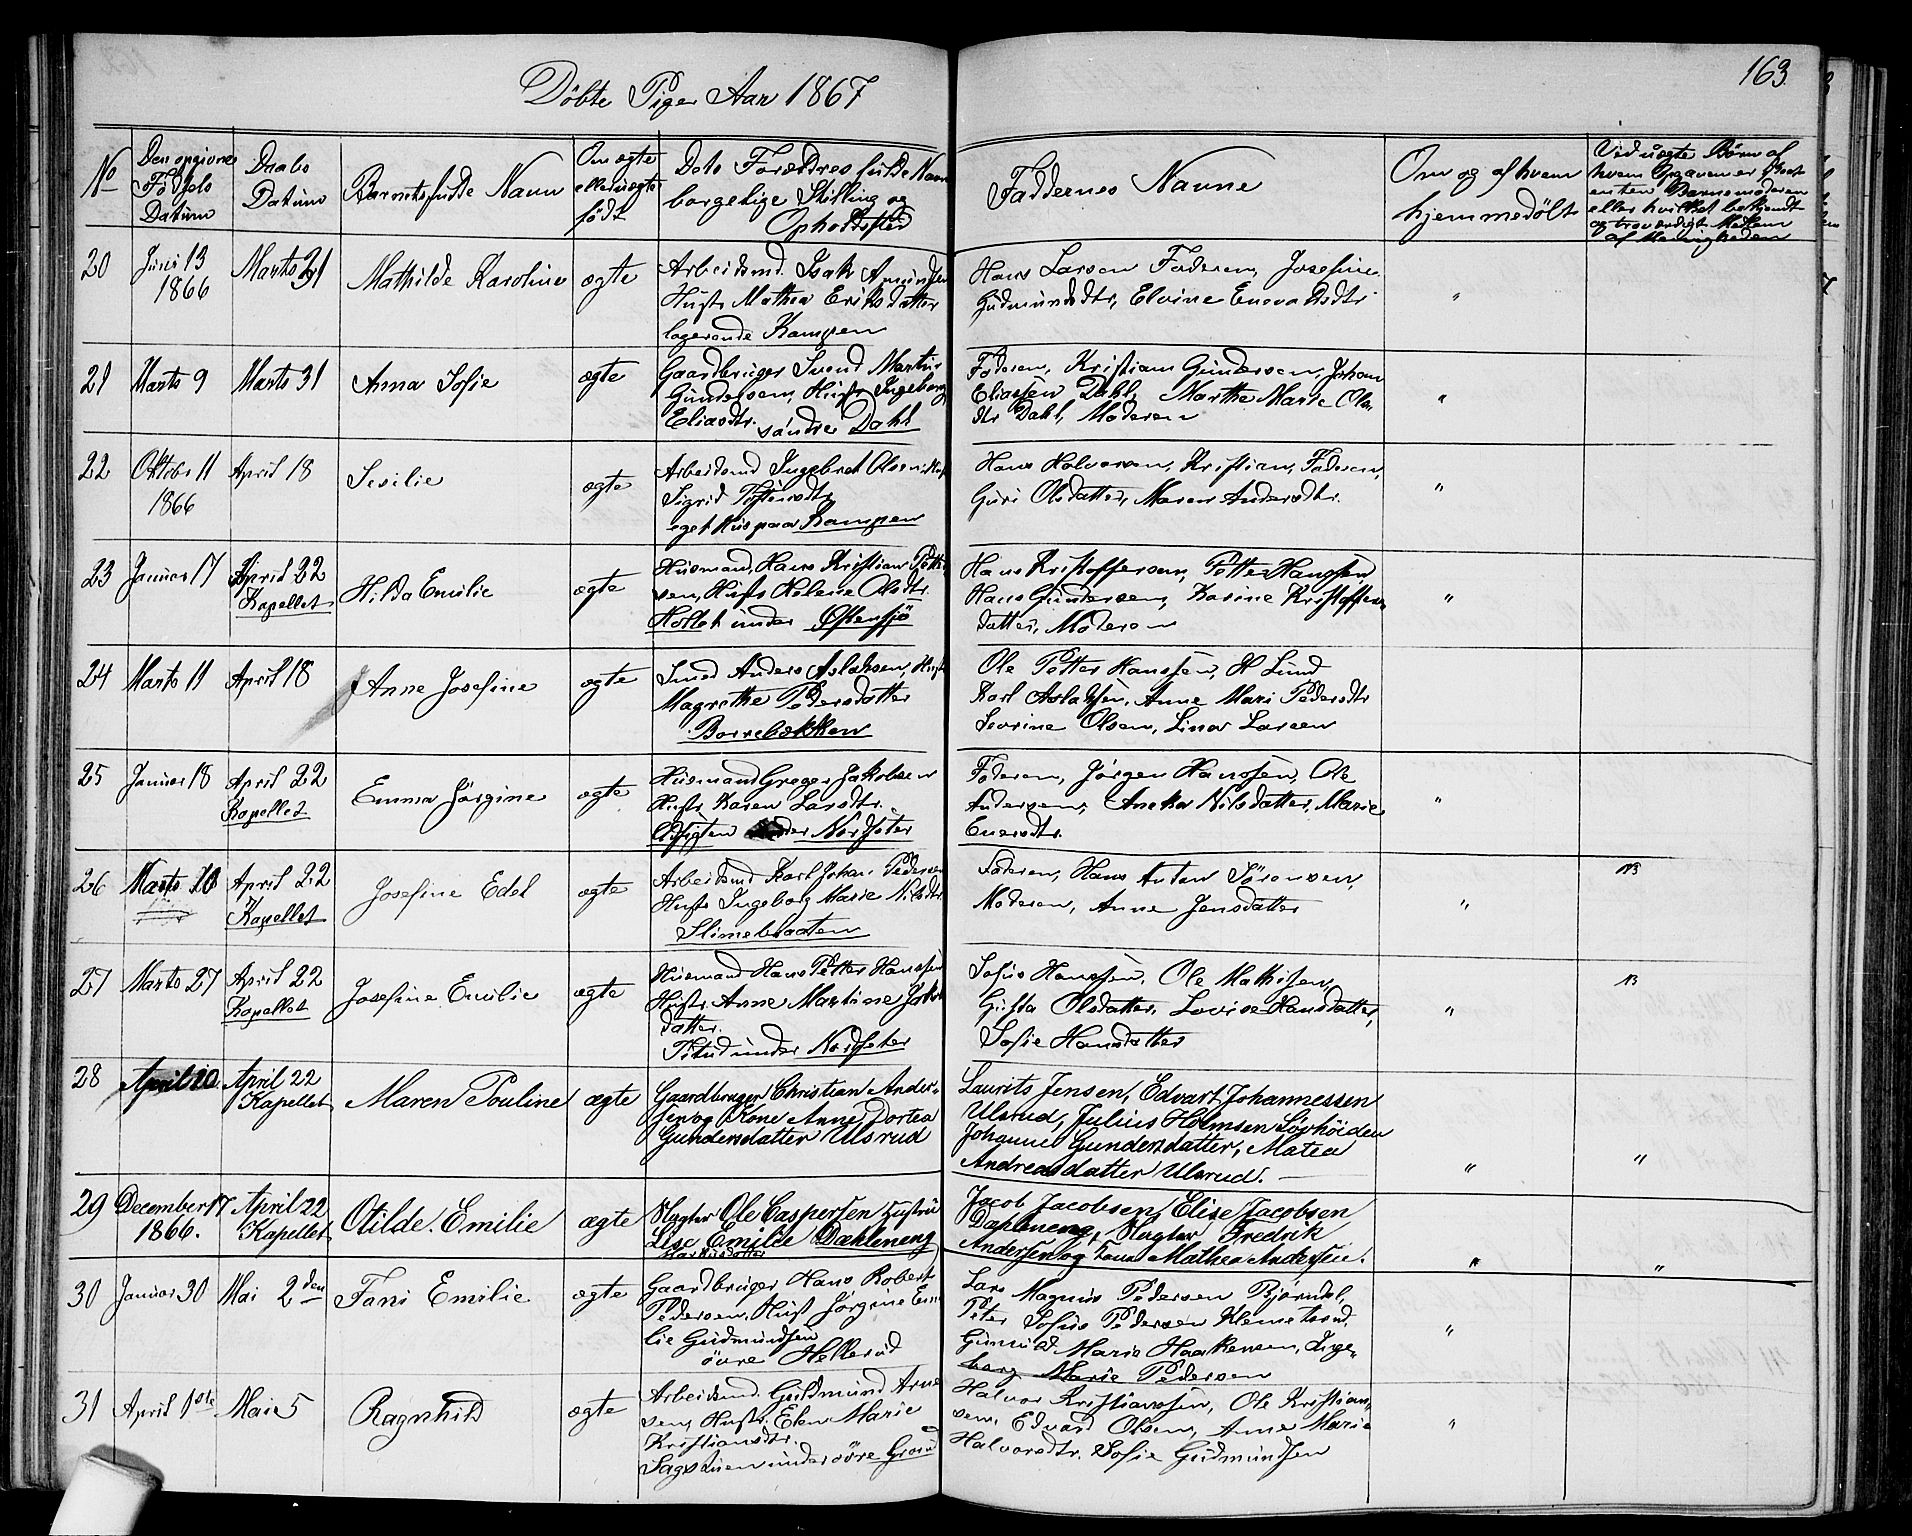 163
Döbte Piger Aar 1867
No
Den opgivne
Födsels
Datum
Daabs
Datum
Barnets fulde Navn
Om ægte
eller uægte
födt
Dets Forældres fulde Navn
borgelige Stilling og
Opholdssted
Faddernes Navne
Om og af hvem
hjemmedöbt
Ved uægte Börn af
hvem Opgaven er skeet
enten Barnemoderen
eller hvilket bekjendt
og troværdigt Medlem
af Menigheden
20
Juni 13
1866
Marts 31
Mathilde Karoline
ægte
Arbeidsmd. Isak Amundsen
Hustr Mathea Eriksdatter
logerende Kampen
Hans Larsen Faderen, Josefine
Gudmundsdtr, Elvine Enevoldsdtr
"
21
Marts 9
Marts 31
Anna Sofie
ægte
Gaardbruger Svend Martin
Gundersen, Hustr Ingeborg
Eliasdtr. söndre Dahl
Faderen, Kristian Gundersen, Johan
Eliassen Dahl, Marthe Marie Ols
dtr Dahl, Moderen
"
22
Oktobr 11
1866
April 18
Sesilie
ægte
Arbeidsmd Ingebret Olsen, Hust
Sigrid
eget Hus paa Kampen
Hans Halvorsen, Kristian, Faderen,
Guri Olsdatter, Maren Andersdtr.
"
23
Januar 17
April 22
Kapellet
Hilda Emilie
ægte
Husmand, Hans Kristian Pett
sen, Hustr Helene Olsdtr.
under Østensjö
Hans Kristoffersen, Petter Hanssen,
Hans Gundersen, Karine Kristoffers
datter, Moderen
"
24
Marts 11
April 18
Anne Josefine
ægte
Smed Anders Aslaksen, Hustr
Magrethe Pedersdatter
Borrebækken
Ole Petter Hanssen, H Lund
Karl Aslaksen, Anne Mari Pedersdtr
Sevrine Olsen, Lina Larsen
25
Januar 18
April 22
Kapellet
Emma Jörgine
ægte
Husmand Greger Jakobsen
Hustr Karen Larsdtr.
under Nordseter
Faderen, Jörgen Hanssen, Ole
Andersen, Aneka Nilsdatter, Marie
Enersdtr.
"
26
Marts 10
April 22
Kapellet
Josefine Edel
ægte
Arbeidsmd Karl Johan Pedersen
Hustr Ingeborg Marie Nilsdtr
Slimebraaten
Faderen, Hans Anton Sörensen,
Moderen, Anne Jensdatter
"
NB
27
Marts 27
April 22
Kapellet
Josefine Emilie
ægte
Husmand Hans Petter Hanssen
Hustr. Anne Martine Jakobs
datter.
under Nordseter
Sofus Hanssen, Ole Mathisen,
Gusta Olsdatter, Lovise Hansdatter,
Sofie Hansdatter
"
NB
28
April 10
April 22
Kapellet
Maren Pouline
ægte
Gaardbruger Christian Ander-
sen og Kone Anne Dortea
Gundersdatter Ulsrud
Laurits Jensen, Edvart Johannessen
Ulsrud, Julius Holmsen Lövhöiden
Johanne Gundersdatter, Matea
Andreasdatter Ulsrud. -
"
"
29
December 17
1866.
April 22
Kapellet
Otilde. Emilie
ægte
Slagter Ole Caspersen hustru
Lise Emilie Dæhleneng
Markusdatter
Jacob Jacobsen, Elise Jacobsen,
Dæhleneng, Slagter Fredrik
Andersen og kone Mathea Andersen.
"
"
30
Januar 30
Mai 2den
Fani Emilie
ægte
Gaardbruger Hans Robert
Pedersen, Hust Jörgine Emi
lie Gudmundsen
övre Hellerud
Lars Magnus Pedersen Björndal,
Peter Sofus Pedersen Klemetsrud,
Gunnild Marie Haakensen, Inge-
borg Marie Pedersen
"
31
April 1ste
Mai 5
Ragnhild
ægte
Arbeidsmd. Guldmund Arne
sen, Hustr. Elen Marie
Kristiansdtr.
Sagstuen under söre Grorud
Halvor Kristianssen, Ole Kristian-
sen, Edvard Olsen, Anne Marie
Halvorsdtr. Sofie Gudmundsen
"